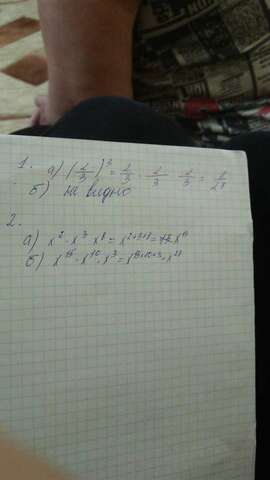 1. а) (1/3)³ = 1/3 · 1/3 · 1/3 = 1/27
б) не видно
2.
а) x² · x³ · x⁸ = x²⁺³⁺⁸ =
б) x¹⁵ · x¹⁰ · x³ = x¹⁵⁺¹⁰⁺³ = x²⁸